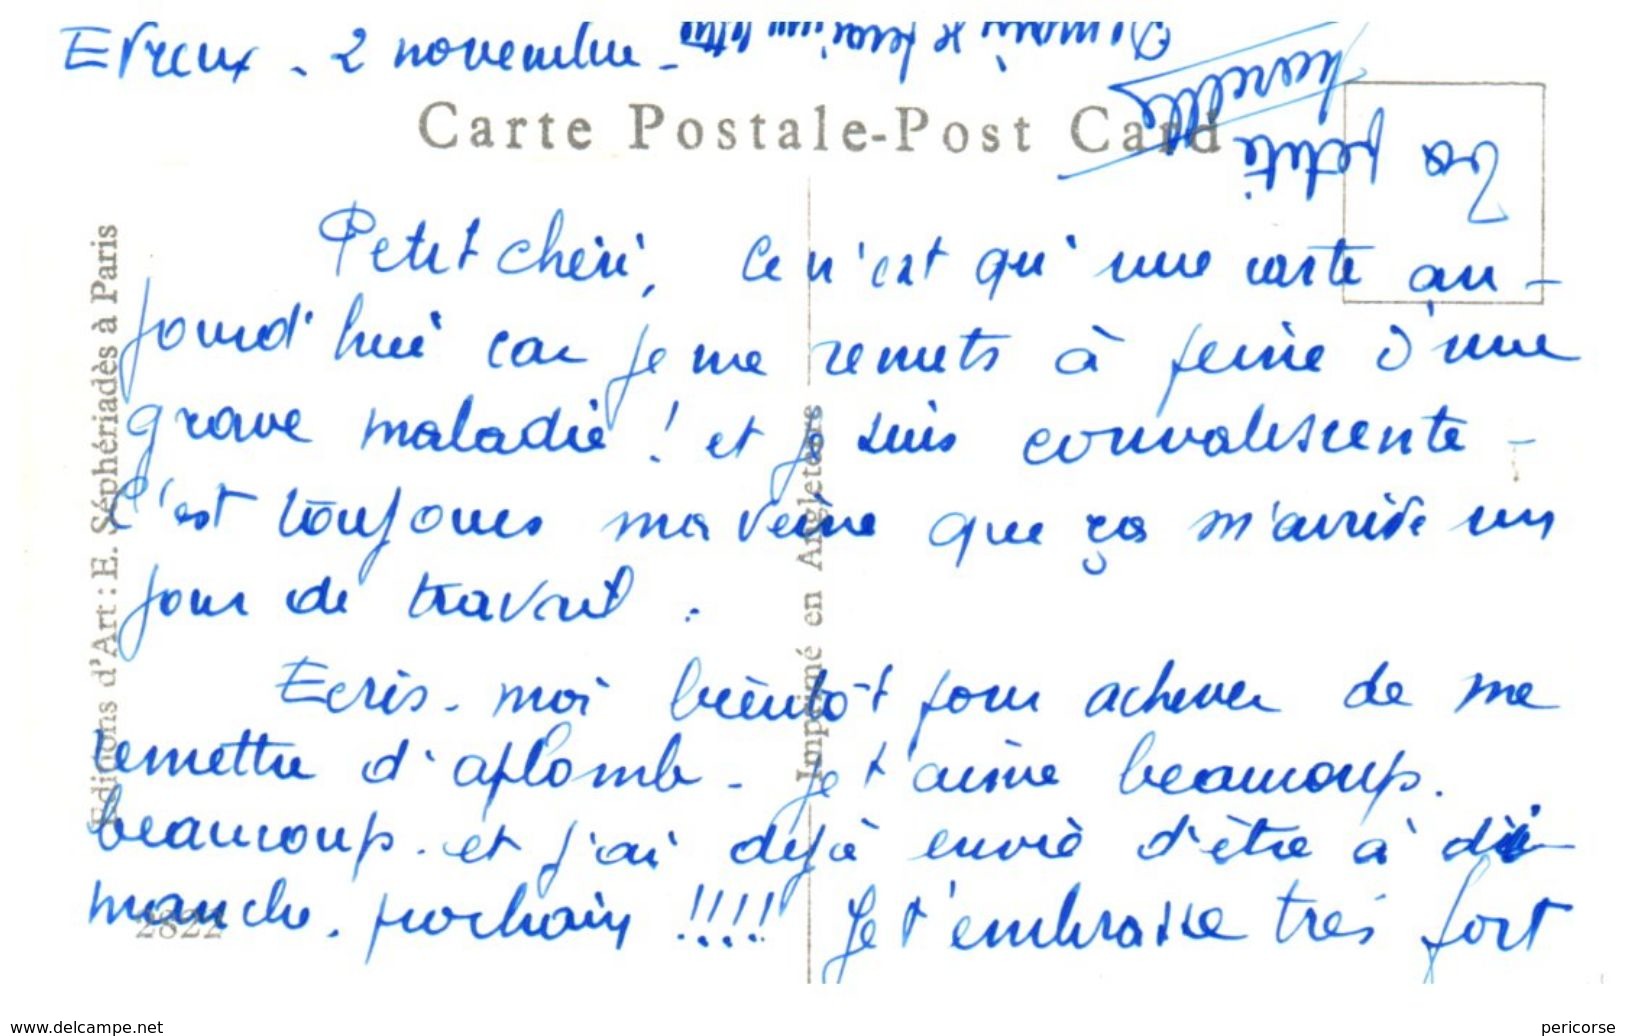 Evreux - 2 novembre -
Carte Postale-Post Card
Petit chéri, Ce n'est qu'une carte au-
jourd'hui car je me remets à peine d'une
grave maladie ! et je suis convalescente -
C'est toujours ma veine que ça m'arrive un
jour de travail.
Ecris-moi bientôt pour achever de me
remettre d'aplomb - Je t'aime beaucoup.
beaucoup. et j'ai déjà envie d'être à di-
manche. prochain !!!! Je t'embrasse très fort
Ta petite
Demain je ferai une lettre
Editions d'Art : E. Séphériadès à Paris
Imprimé en Angleterre
2822
www.delcampe.net
pericorse